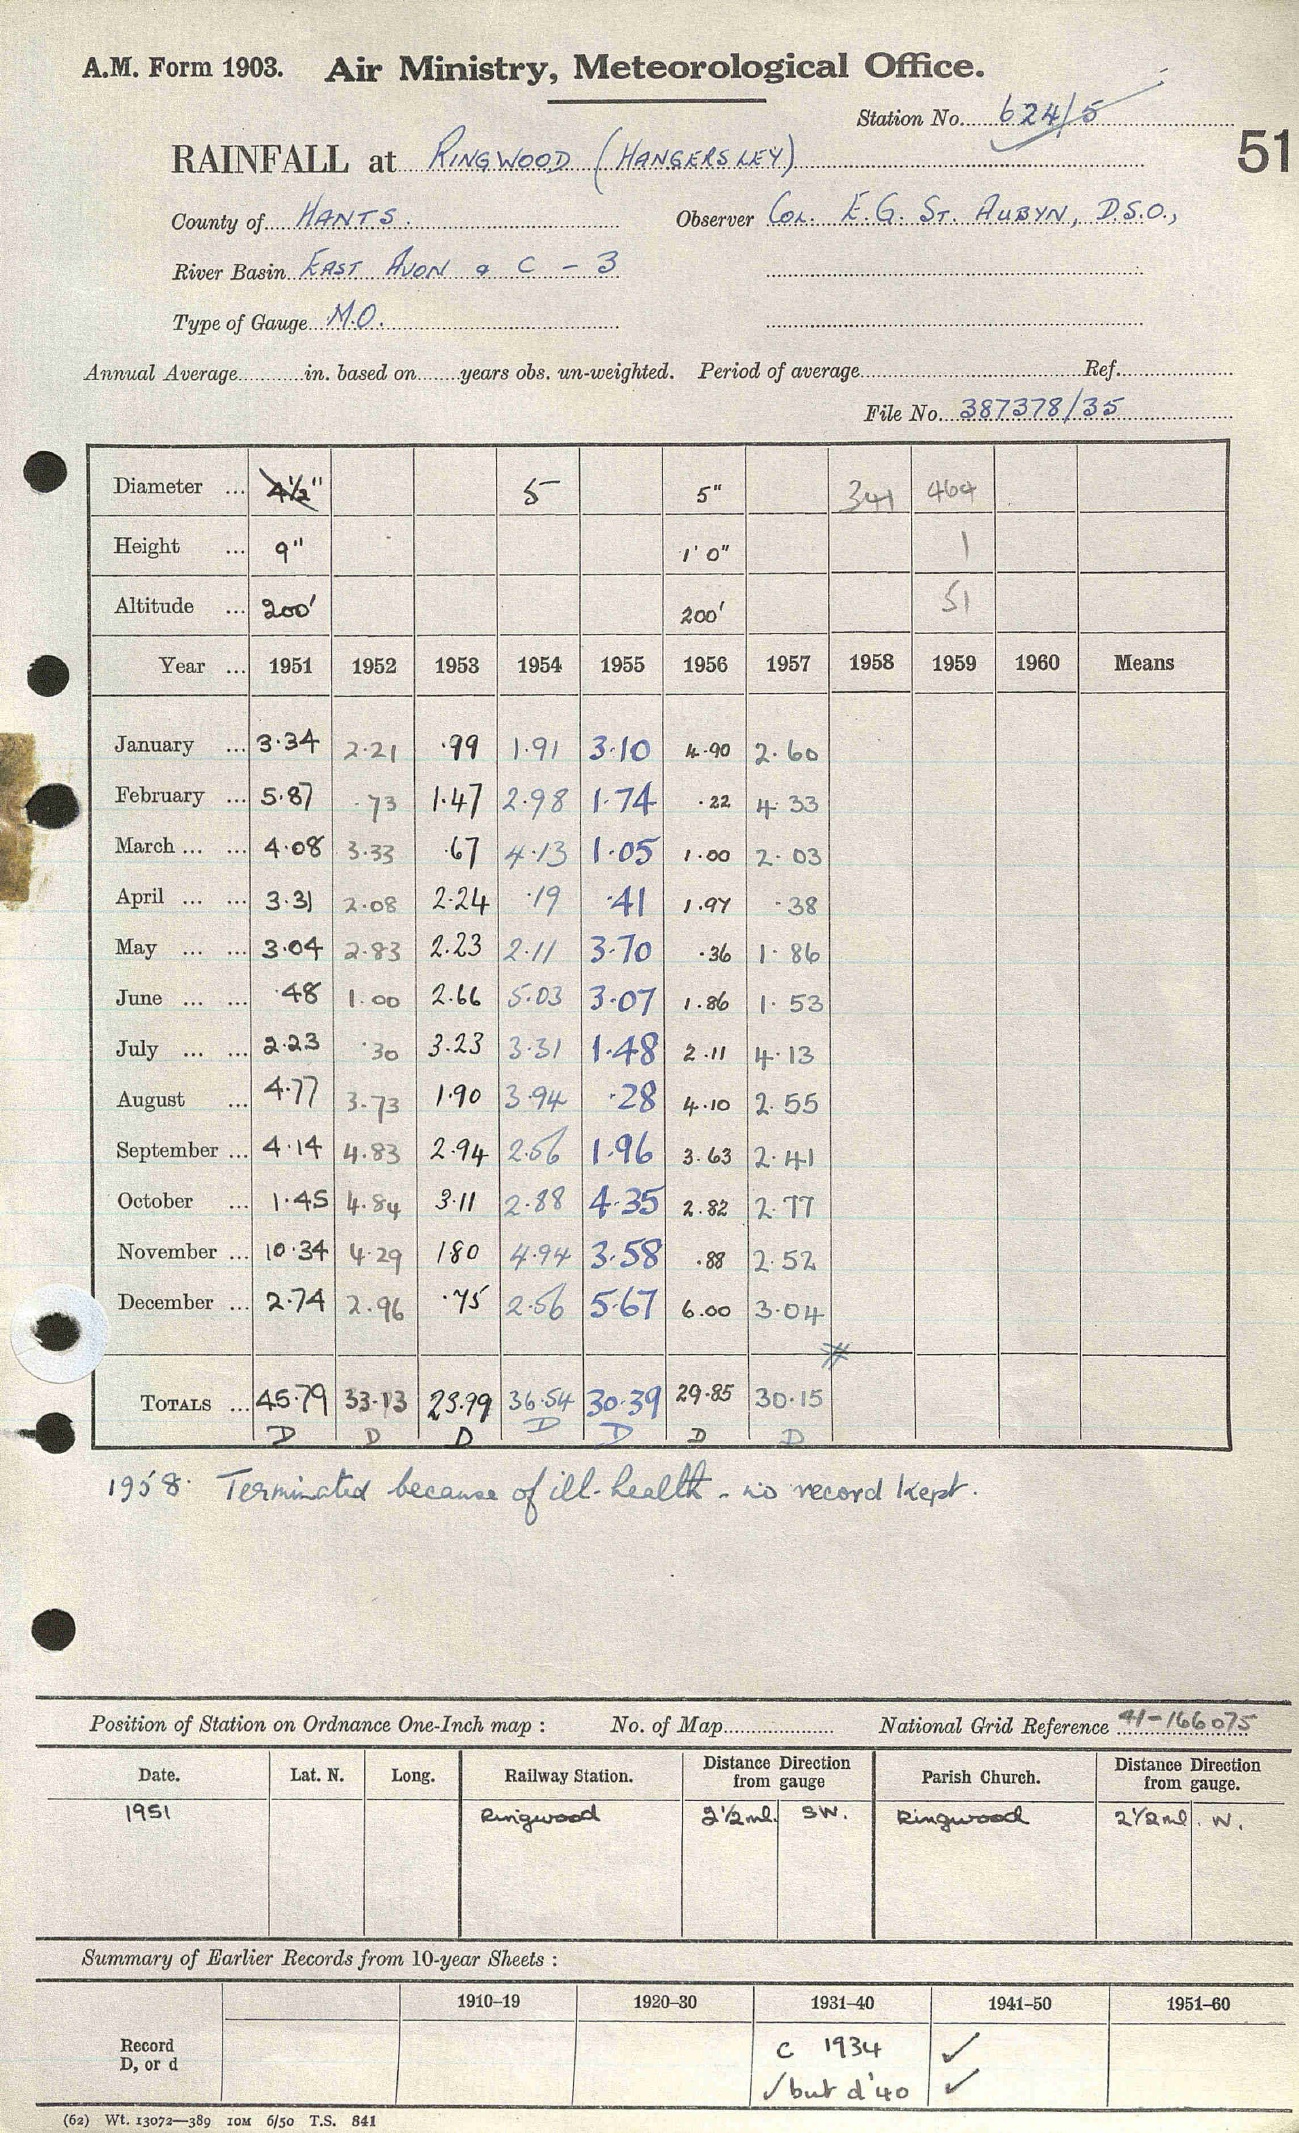 A.M. Form 1903. Air Ministry, Meteorological Office.
Station No. 624/5
51
RAINFALL at RINGWOOD (HANGERSLEY)
County of HANTS. Observer COL. E.G. ST. AUBYN, D.S.O.,
River Basin EAST AVON & C - 3
Type of Gauge M.O.
Annual Average in. based on years obs. un-weighted. Period of average Ref.
File No. 387378/35
Diameter ... 4½" 5 5" 341 464
Height ... 9" 1' 0" 1
Altitude ... 200' 200' 51
Year ... 1951 1952 1953 1954 1955 1956 1957 1958 1959 1960 Means
January ... 3.34 2.21 .99 1.91 3.10 4.90 2.60
February ... 5.87 .73 1.47 2.98 1.74 .22 4.33
March ... ... 4.08 3.33 .67 4.13 1.05 1.00 2.03
April ... ... 3.31 2.08 2.24 .19 .41 1.97 .38
May ... ... 3.04 2.83 2.23 2.11 3.70 .36 1.86
June ... ... .48 1.00 2.66 5.03 3.07 1.86 1.53
July ... ... 2.23 .30 3.23 3.31 1.48 2.11 4.13
August ... 4.77 3.73 1.90 3.94 .28 4.10 2.55
September ... 4.14 4.83 2.94 2.56 1.96 3.63 2.41
October ... 1.45 4.84 3.11 2.88 4.35 2.82 2.77
November ... 10.34 4.29 1 80 4.94 3.58 .88 2.52
December ... 2.74 2.96 .75 2.56 5.67 6.00 3.04
TOTALS ... 45.79 33.13 23.99 36.54 30.39 29.85 30.15
D D D D D D D
1958. Terminated because of ill-health - no record kept.
Position of Station on Ordnance One-Inch map : No. of Map National Grid Reference 41-166075
Date. Lat. N. Long. Railway Station. Distance Direction from gauge Parish Church. Distance Direction from gauge.
1951 Ringwood 2½ml. SW. Ringwood 2½ml. W.
Summary of Earlier Records from 10-year Sheets :
1910-19 1920-30 1931-40 1941-50 1951-60
Record D, or d
C 1934 ✓
✓ but d'40 ✓
(62) Wt. 13072—389 10M 6/50 T.S. 841